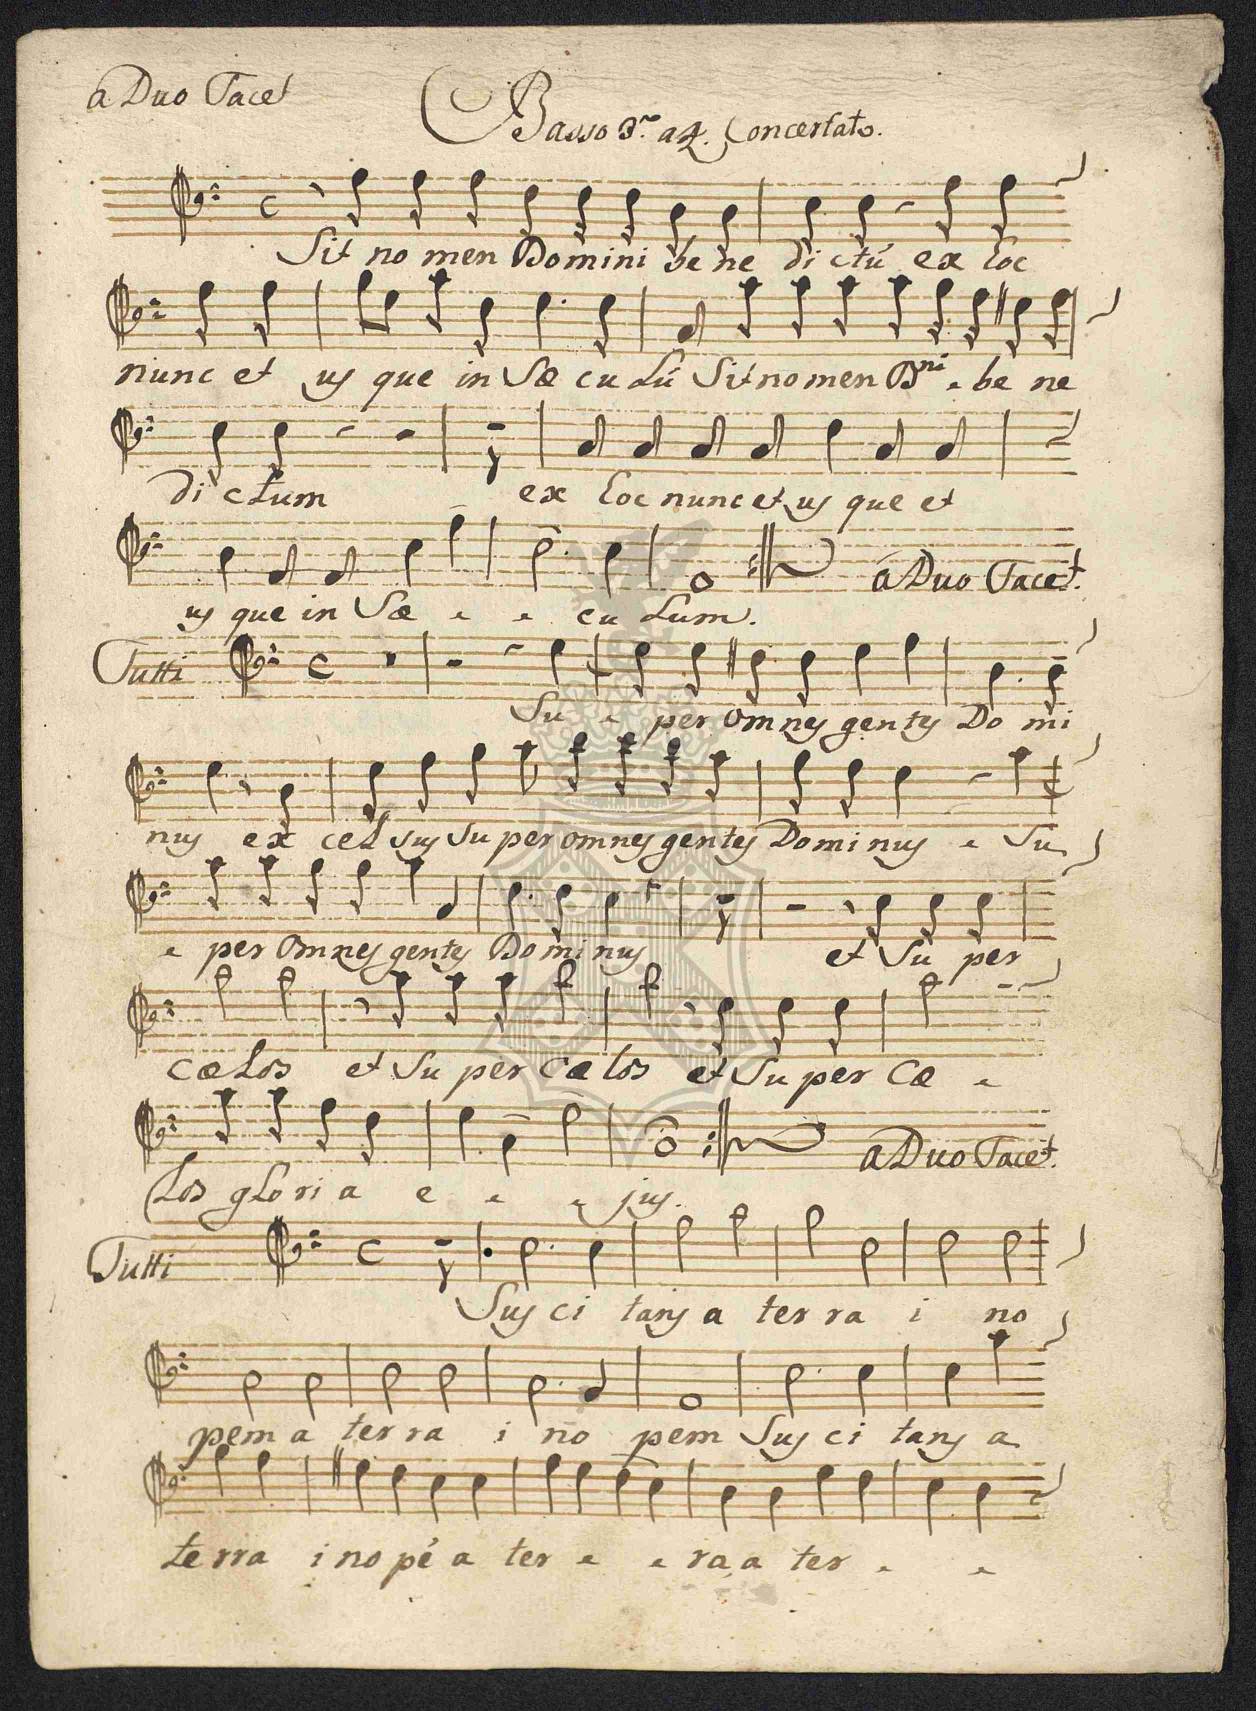 a Duo Tacet
Basso 3.º a 4. Concertato.
Sit no men Domini be ne di ctú ex hoc
nunc et us que in Sæ cu lú Sit no men Dni - be ne
di ctum ex hoc nunc et us que et
us que in Sæ - - cu lum.
a Duo Tacet.
Tutti
Su - per omnes gentes Do mi
nus ex cel sus Su per omnes gentes Domi nus - Su
- per Omnes gentes Domi nus et Su per
Cælos et Su per Cæ los et Su per Cæ -
los glo ri a e - - jus.
a Duo Tacet.
Tutti
Sus ci tans a ter ra i no
pem a ter ra i no pem Sus ci tans a
te rra i no pé a ter - - ra a ter - -